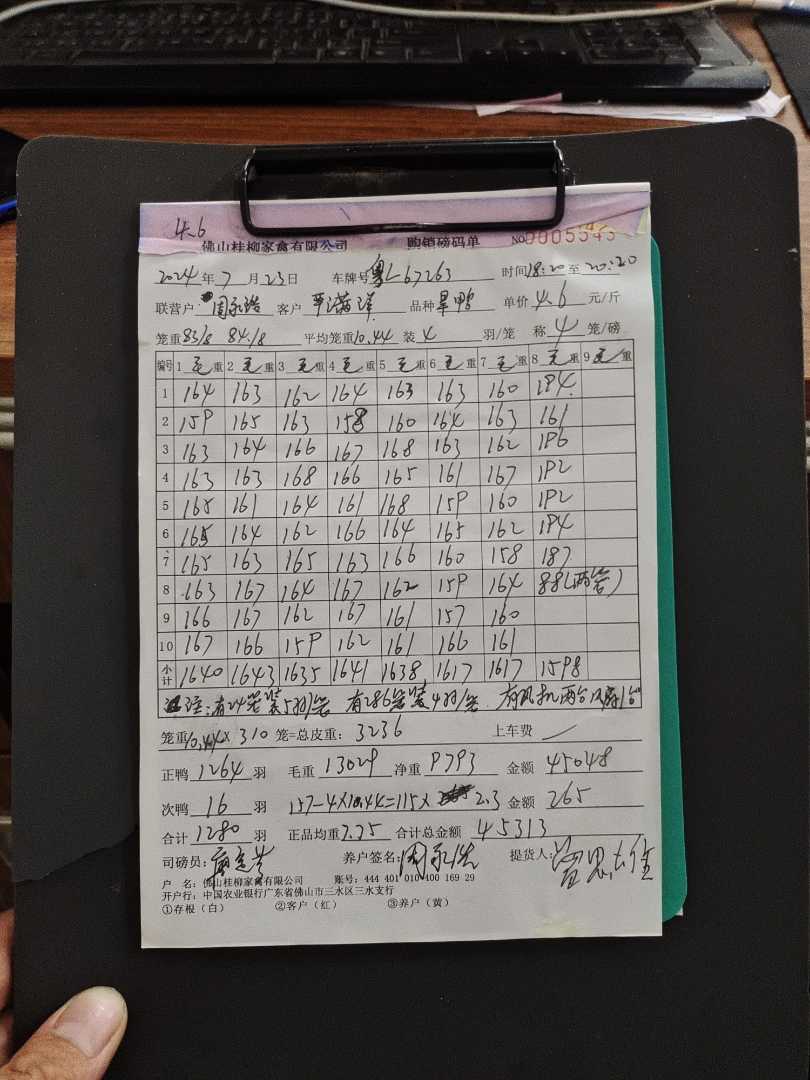 4.6
佛山桂柳家禽有限公司 购销磅码单 No 0005545
2024年7月23日 车牌号粤L67263 时间18:20至20:20
联营户 周永浩 客户 品种 旱鸭 单价 4.6 元/斤
笼重83/8 84/8 平均笼重10.44 装 4 羽/笼 称 4 笼/磅
编号 1毛重 2毛重 3毛重 4毛重 5毛重 6毛重 7毛重 8毛重 9毛重
1 164 163 162 164 163 163 160 194
2 159 165 163 158 160 164 163 161
3 163 164 166 167 168 163 162 196
4 163 163 168 166 165 161 167 192
5 165 161 164 161 168 159 160 192
6 165 164 162 166 164 165 162 194
7 165 163 165 163 166 160 158 187
8 163 167 164 167 162 159 164 88(两笼)
9 166 167 162 167 161 157 160
10 167 166 159 162 161 166 161
小计 1640 1643 1635 1641 1638 1617 1617 1598
注:有24笼装5羽/笼 有286笼装4羽/笼 有风机两台风扇1台
笼重10.44×310笼=总皮重:3236 上车费 /
正鸭 1264 羽 毛重 13029 净重 9793 金额 45048
次鸭 16 羽 157-4×10.44=115× 2.3 金额 265
合计 1280 羽 正品均重 7.75 合计总金额 45313
司磅员: 养户签名: 周永浩 提货人:
户 名:佛山桂柳家禽有限公司 账号:444 401 010 400 169 29
开户行:中国农业银行广东省佛山市三水区三水支行
①存根(白) ②客户(红) ③养户(黄)